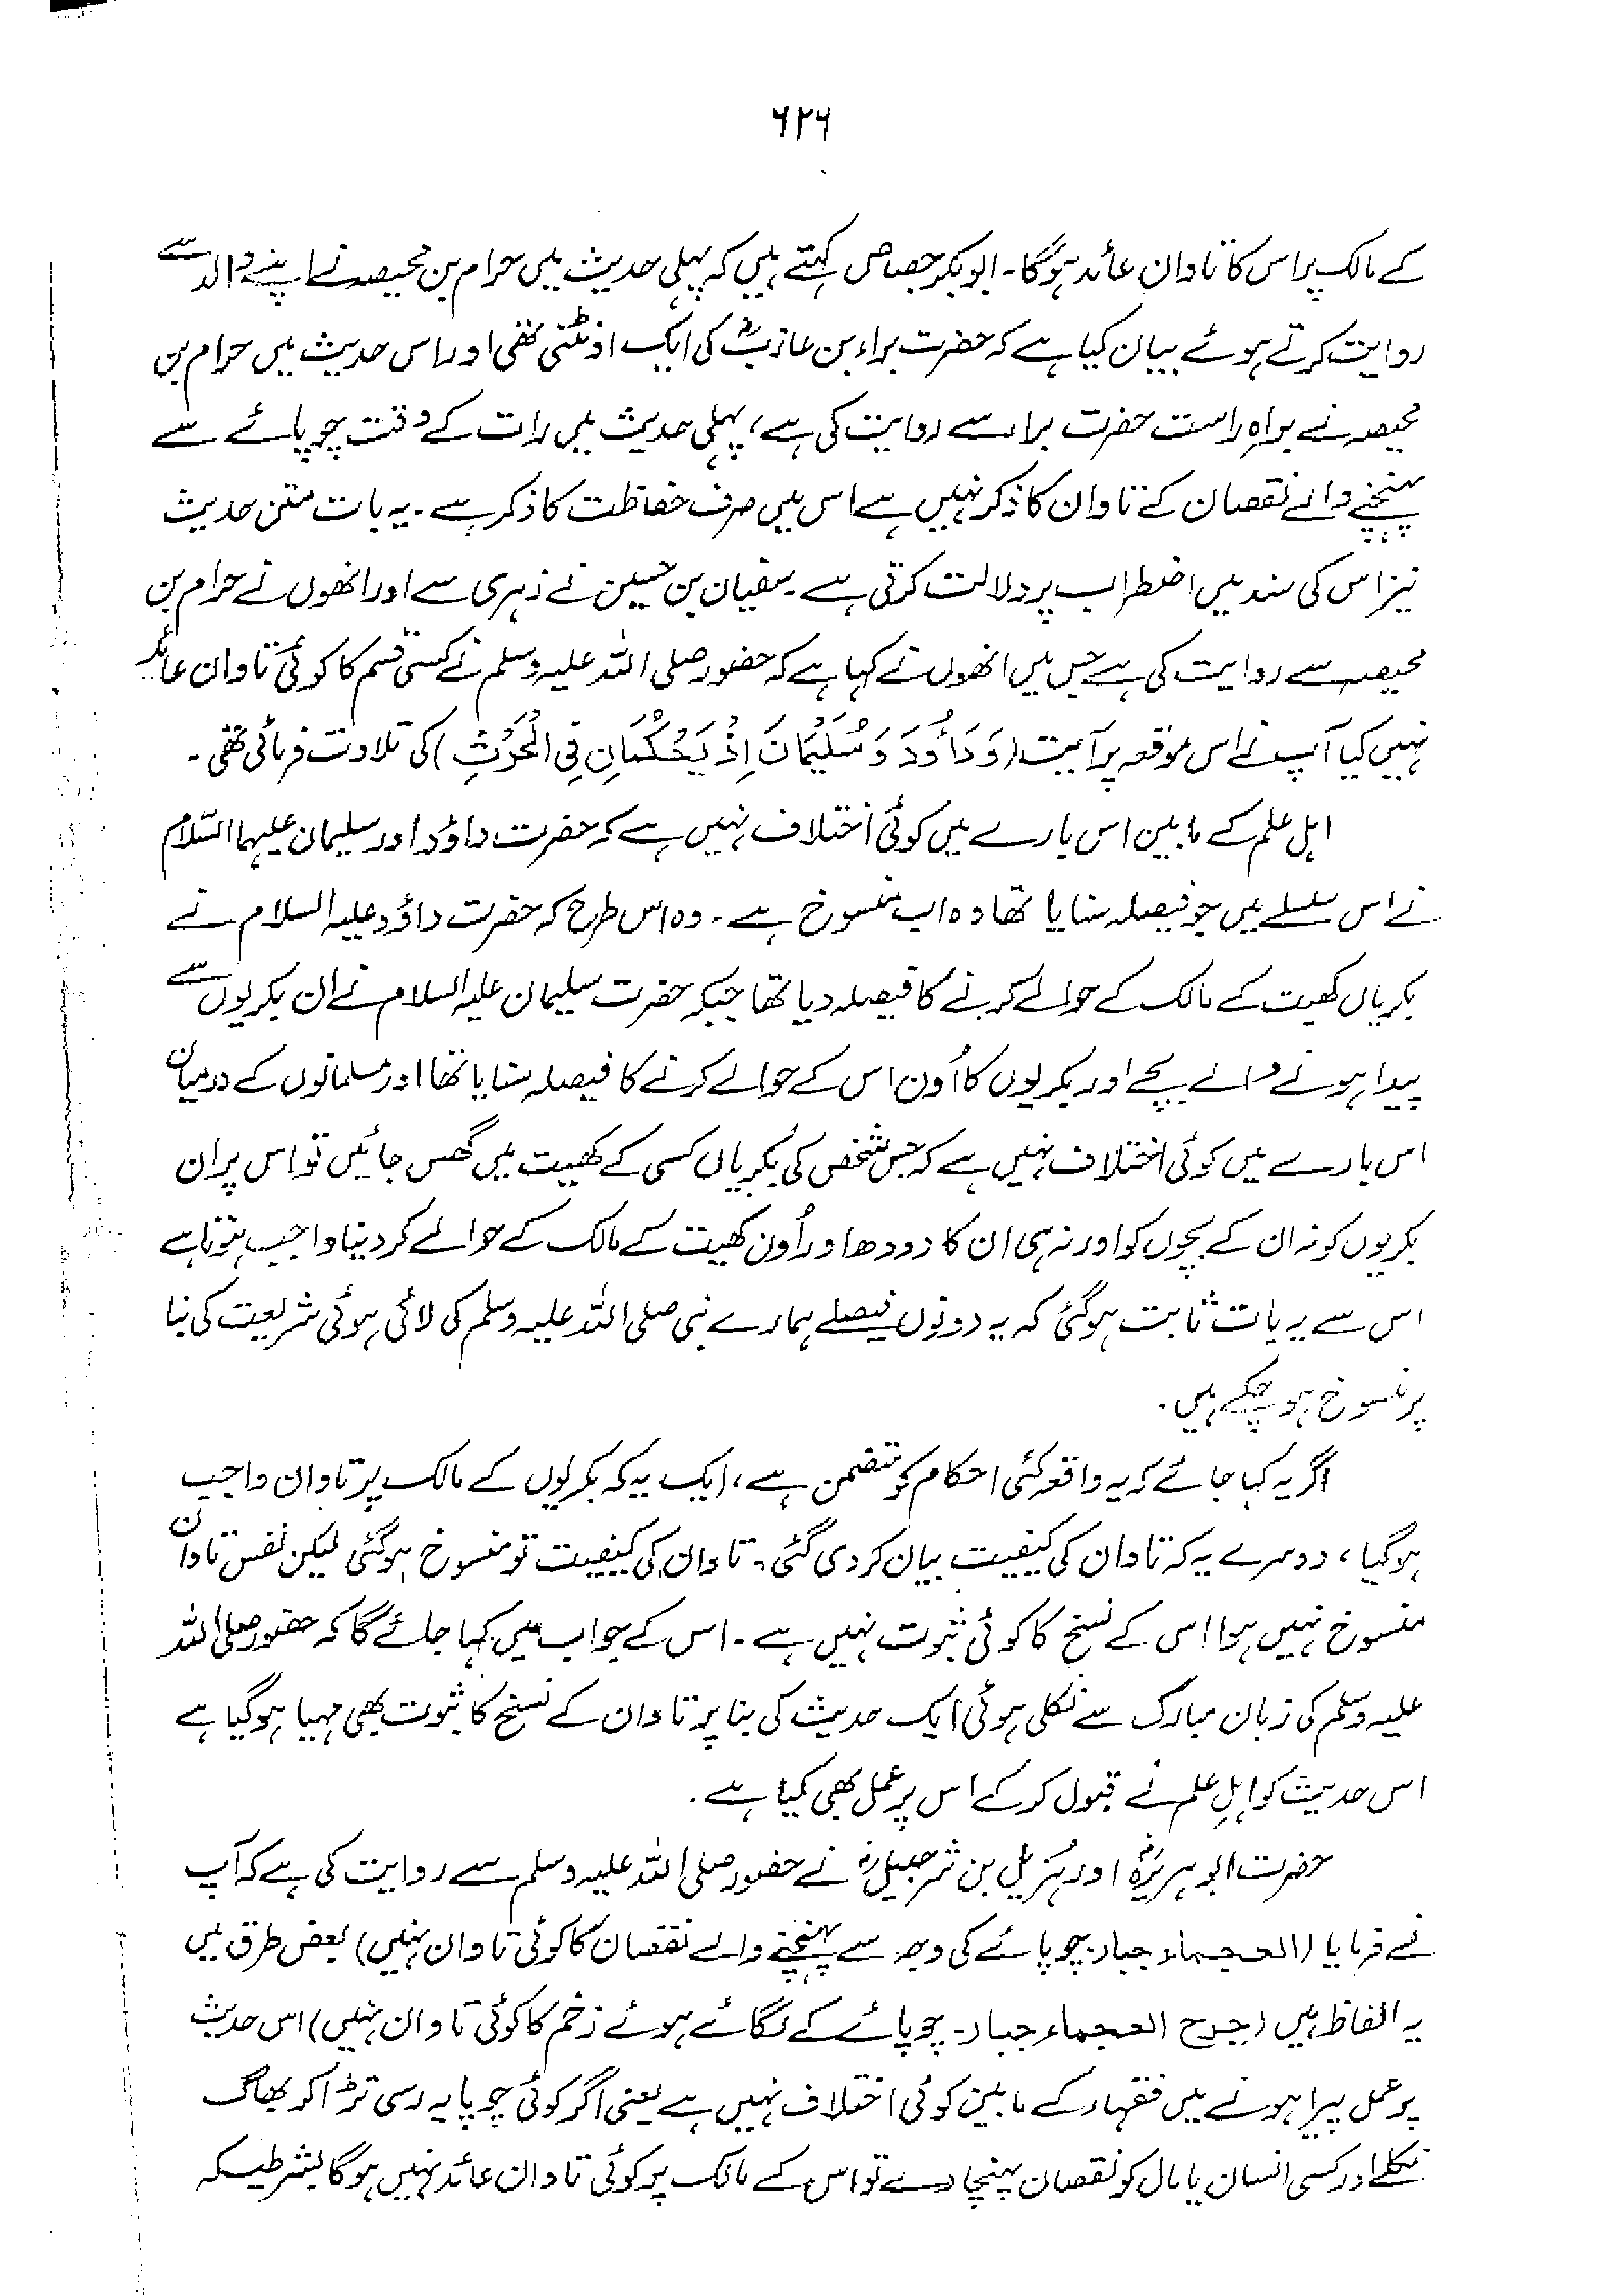 ۶۲۶
کے مالک پر اس کا تاوان عائد ہوگا۔ ابوبکر جصاص کہتے ہیں کہ پہلی حدیث میں حرام بن محیصہ نے اپنے والد سے
روایت کرتے ہوئے بیان کیا ہے کہ حضرت براء بن عازبؓ کی ایک اونٹنی تھی اور اس حدیث میں حرام بن
محیصہ نے براہ راست حضرت براء سے روایت کی ہے، پہلی حدیث میں رات کے وقت چوپائے سے
پہنچنے والے نقصان کے تاوان کا ذکر نہیں ہے اس میں صرف حفاظت کا ذکر ہے۔ یہ بات متن حدیث
نیز اس کی سند میں اضطراب پر دلالت کرتی ہے۔ سفیان بن حسین نے زہری سے اور انھوں نے حرام بن
محیصہ سے روایت کی ہے جس میں انھوں نے کہا ہے کہ حضور صلی اللہ علیہ وسلم نے کسی قسم کا کوئی تاوان عائد
نہیں کیا آپ نے اس موقعہ پر آیت (وَدَاؤُدَ وَسُلَيْمَانَ اِذْ يَحْكُمَانِ فِي الْحَرْثِ) کی تلاوت فرمائی تھی۔
اہل علم کے مابین اس بارے میں کوئی اختلاف نہیں ہے کہ حضرت داؤد اور سلیمان علیہما السّلام
نے اس سلسلے میں جو فیصلہ سنایا تھا وہ اب منسوخ ہے۔ وہ اس طرح کہ حضرت داؤد علیہ السلام نے
بکریاں کھیت کے مالک کے حوالے کرنے کا فیصلہ دیا تھا جبکہ حضرت سلیمان علیہ السلام نے ان بکریوں سے
پیدا ہونے والے بچے اور بکریوں کا اُون اس کے حوالے کرنے کا فیصلہ سنایا تھا اور مسلمانوں کے درمیان
اس بارے میں کوئی اختلاف نہیں ہے کہ جس شخص کی بکریاں کسی کے کھیت میں گھس جائیں تو اس پر ان
بکریوں کو نہ ان کے بچوں کو اور نہ ہی ان کا دودھ اور اُون کھیت کے مالک کے حوالے کر دینا واجب ہوتا ہے
اس سے یہ بات ثابت ہوگئی کہ یہ دونوں فیصلے ہمارے نبی صلی اللہ علیہ وسلم کی لائی ہوئی شریعت کی بنا
پر منسوخ ہو چکے ہیں۔
اگر یہ کہا جائے کہ یہ واقعہ کئی احکام کو متضمن ہے، ایک یہ کہ بکریوں کے مالک پر تاوان واجب
ہوگیا، دوسرے یہ کہ تاوان کی کیفیت بیان کر دی گئی۔ تاوان کی کیفیت تو منسوخ ہوگئی لیکن نفس تاوان
منسوخ نہیں ہوا اس کے نسخ کا کوئی ثبوت نہیں ہے۔ اس کے جواب میں کہا جائے گا کہ حضور صلی اللہ
علیہ وسلم کی زبان مبارک سے نکلی ہوئی ایک حدیث کی بنا پر تاوان کے نسخ کا ثبوت بھی مہیا ہوگیا ہے
اس حدیث کو اہلِ علم نے قبول کر کے اس پر عمل بھی کیا ہے۔
حضرت ابوہریرہؓ اور ہُزیل بن شرحبیلؓ نے حضور صلی اللہ علیہ وسلم سے روایت کی ہے کہ آپ
نے فرمایا (العجماء جبار۔ چوپائے کی وجہ سے پہنچنے والے نقصان کا کوئی تاوان نہیں) بعض طرق میں
یہ الفاظ ہیں (جرح العجماء جبار۔ چوپائے کے لگائے ہوئے زخم کا کوئی تاوان نہیں) اس حدیث
پر عمل پیرا ہونے میں فقہاء کے مابین کوئی اختلاف نہیں ہے یعنی اگر کوئی چوپایہ رسی تڑا کر بھاگ
نکلے اور کسی انسان یا مال کو نقصان پہنچا دے تو اس کے مالک پر کوئی تاوان عائد نہیں ہوگا بشرطیکہ